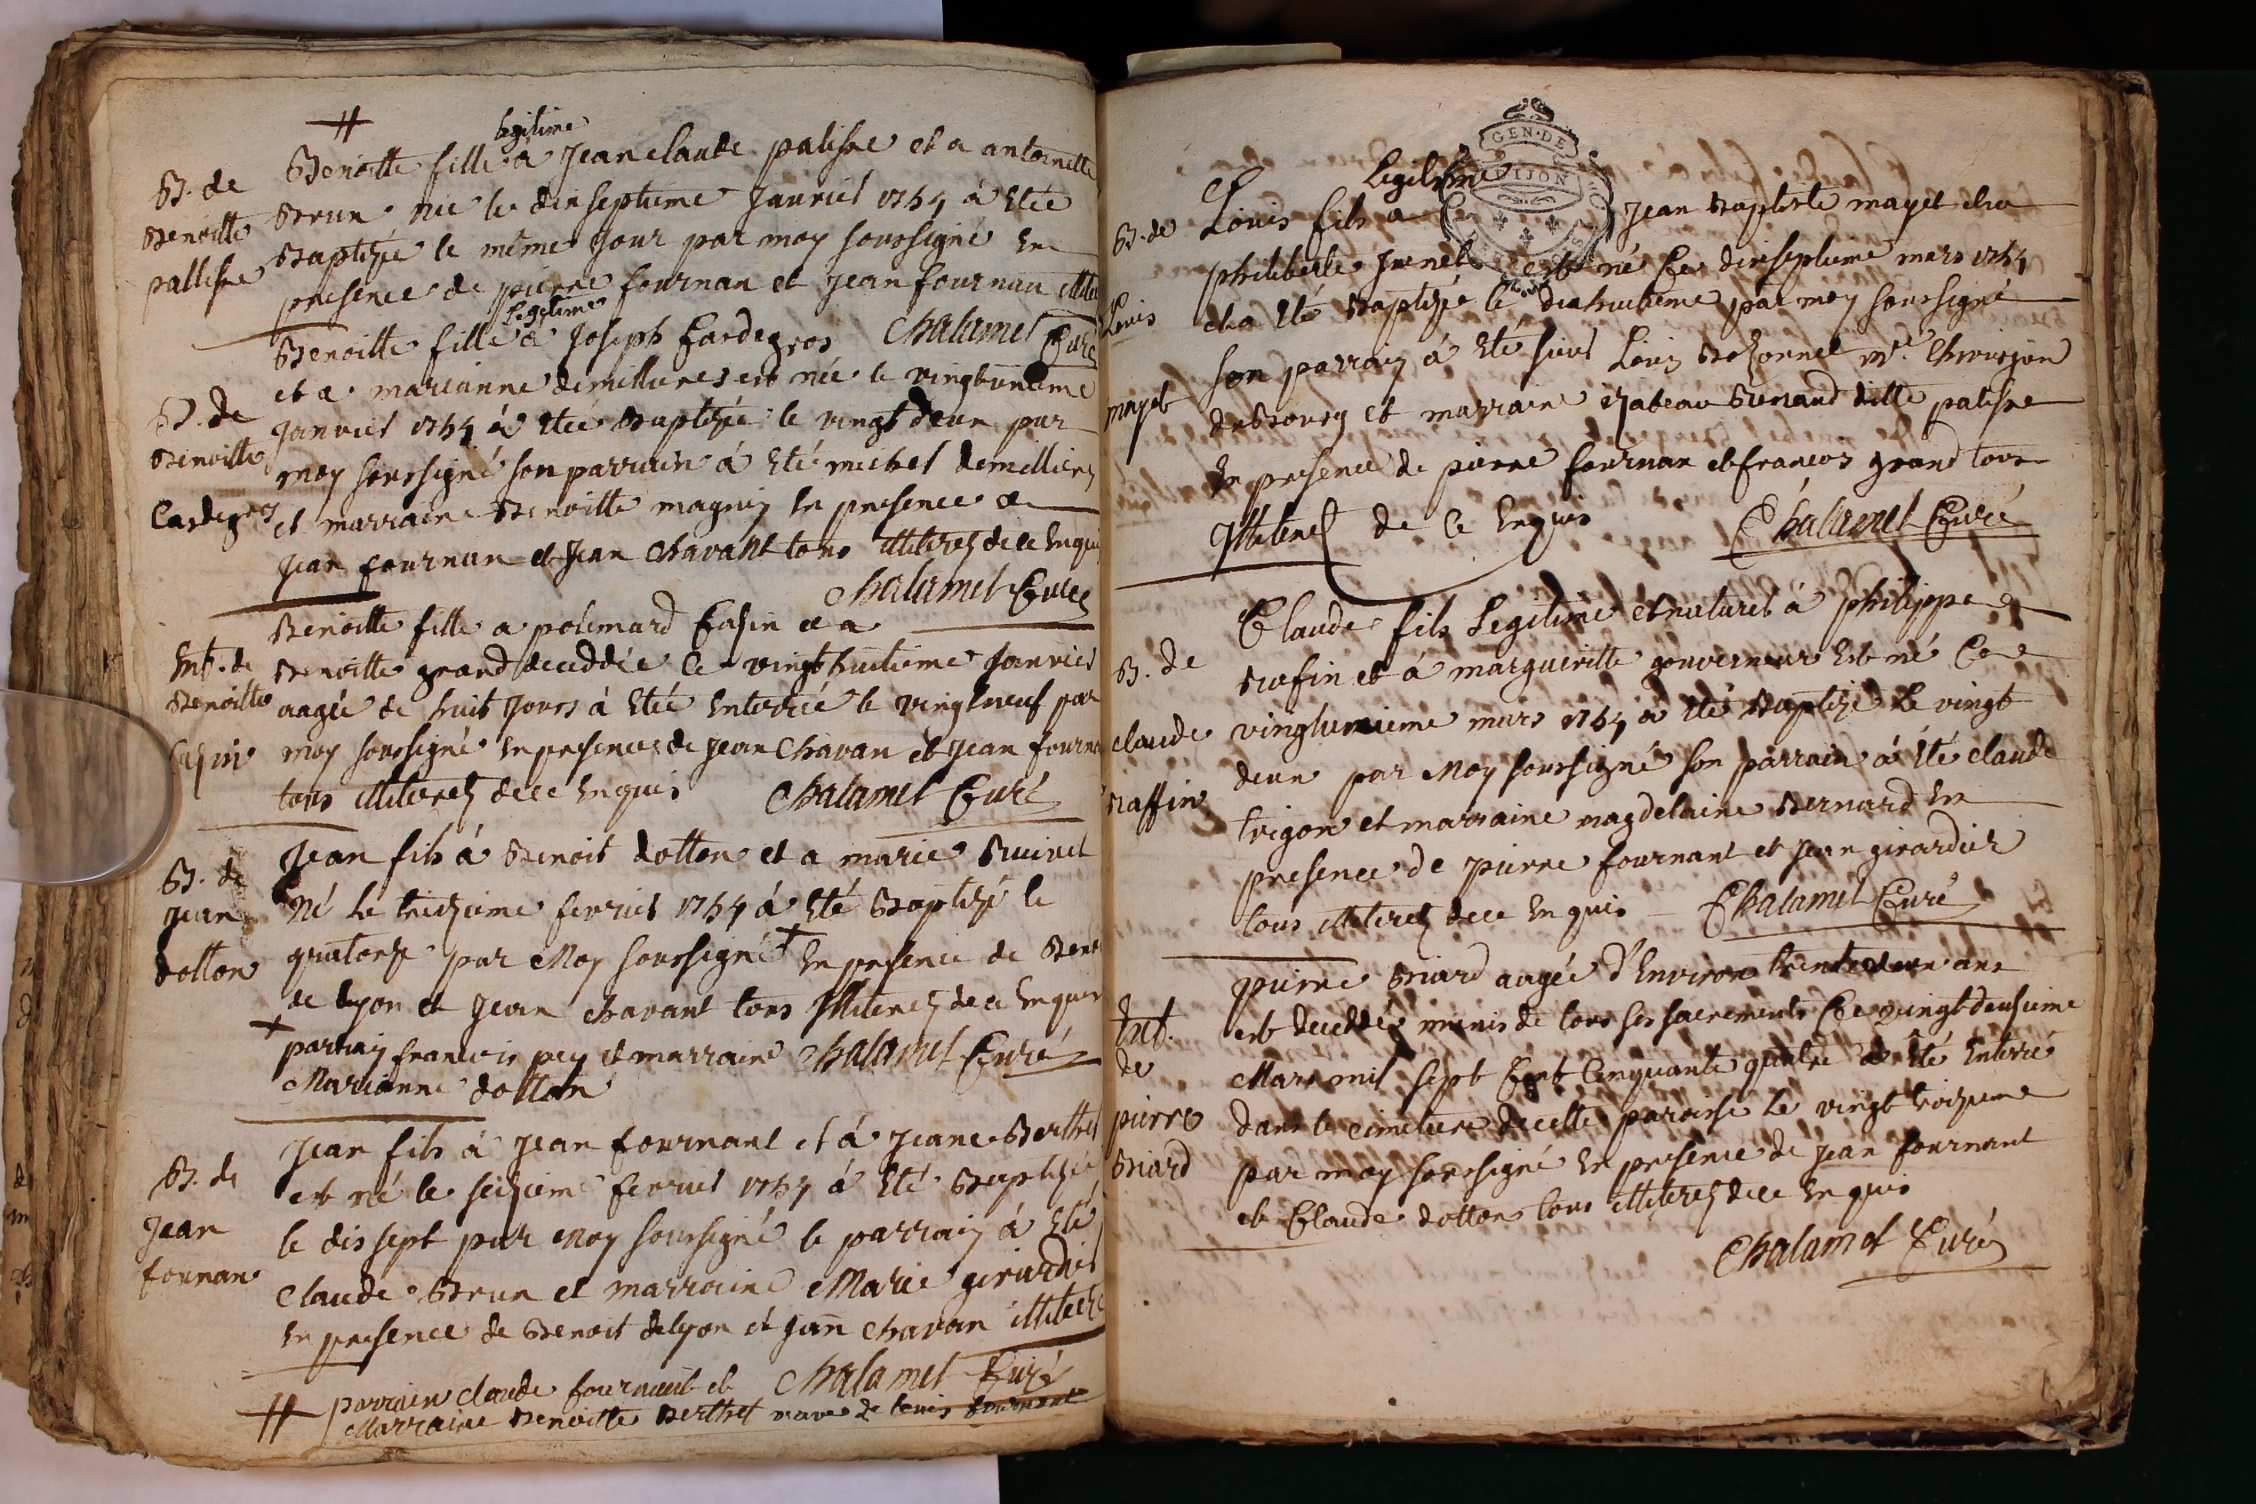 #
legitime
B. de
Benoitte
pallisse
Benoitte fille à Jean claude palisse et a antoinette
Brun née le dixseptieme Janvier 1754 à Etée
Baptizée le même Jour par moy soussigné En
presence de pierre fournan et Jean fournan
legitime
B. de
Benoitte
Cardegros
Benoitte fille à Joseph Cardegros Chalamel Curé
et a marianne demillieres est née le vingtunieme
Janvier 1754 à Etée Baptizée le vingt deux par
moy soussigné son parrain à Eté michel demilliere
et marraine Benoitte magnin En presence de
Jean fournan et Jean Chavant tous illiterez de ce Enquis
Chalamel Curé
Ent. de
Benoitte
Casin
Benoitte fille a polémard Casin et a
Benoitte grand decedée Ce vingt huitieme Janvier
aagée de huit Jours à Etée Enterrée le vingtneuf par
moy soussigné En presences de Jean Chavan et Jean fournan
tous illiterez de ce Enquis Chalamel Curé
B. de
Jean
dotton
Jean fils à Benoit dotton et a marie
Né Le treizieme fevrier 1754 à Eté Baptizé le
quatorze par Moy soussigné + En presence de Benoit
de lyon et Jean Chavant tous Illiterez de ce Enquis
+ parrain francois pey et marraine Chalamel Curé
Marianne dotton
B. de
Jean
fournan
Jean fils à Jean fournant et à Jeane Berthet
est né le seizieme fevrier 1754 à Eté Baptizé
le dissept par Moy soussigné le parrain à Eté
Claude Brun et marraine Marie girardier
En presence de Benoit delyon et Jean Chavan illiterez
Chalamel Curé
# parrain Claude fournant et
Marraine Benoitte Berthet de Louis fournant
GEN. DE
DIJON
Legitime
B. de
Louis
mayet
Louis fils a Jean Baptiste mayet et a
philiberte Junet est né Ce dixseptieme mars 1754
et a Eté Baptizé le dixhuitieme par moy soussigné
son parrain à Eté sieur Louis Bezonnet Me Chirurgien
de Bourg et marraine izabeau Renaud ditte palisse
En presence de pierre fournan et francois grand tous
Illiterez de Ce Enquis Chalamel Curé
B. de
claude
raffin
Claude fils Legitime et naturel à philippe
rafin et à margueritte gouverneur Est né Ce
vingtunieme mars 1754 à Eté Baptizé Le vingt
deux par Moy soussigné son parrain à Eté claude
trigon et marraine magdelaine Bernard En
presence de pierre fournant et Jean girardier
tous illiterez de ce Enquis Chalamel Curé
Ent.
de
pierre
Briard
pierre Briard aagée d'Environ trentedeux ans
est decedé munis de tous ses sacrements Ce vingtdeusieme
Mars mil sept Cent Cinquante quatre à Eté Enterré
dans le cimetiere de cette paroisse Le vingt troizieme
par moy soussigné En presence de Jean fournant
et Claude dotton tous illiterez de ce Enquis
Chalamel Curé